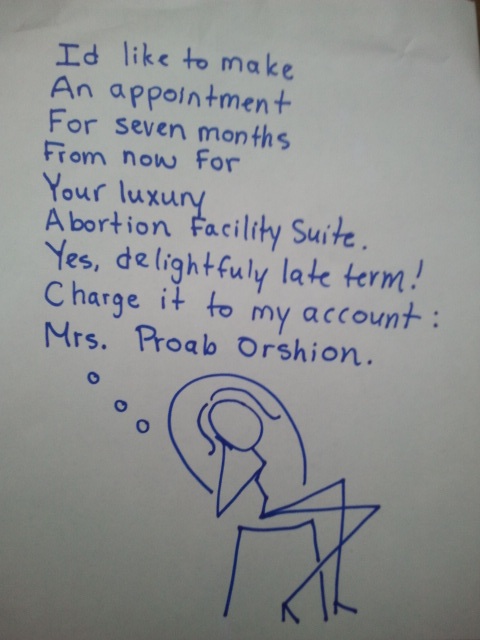 I'd like to make
An appointment
For seven months
From now for
Your luxury
Abortion Facility Suite.
Yes, delightfuly late term!
Charge it to my account:
Mrs. Proab Orshion.